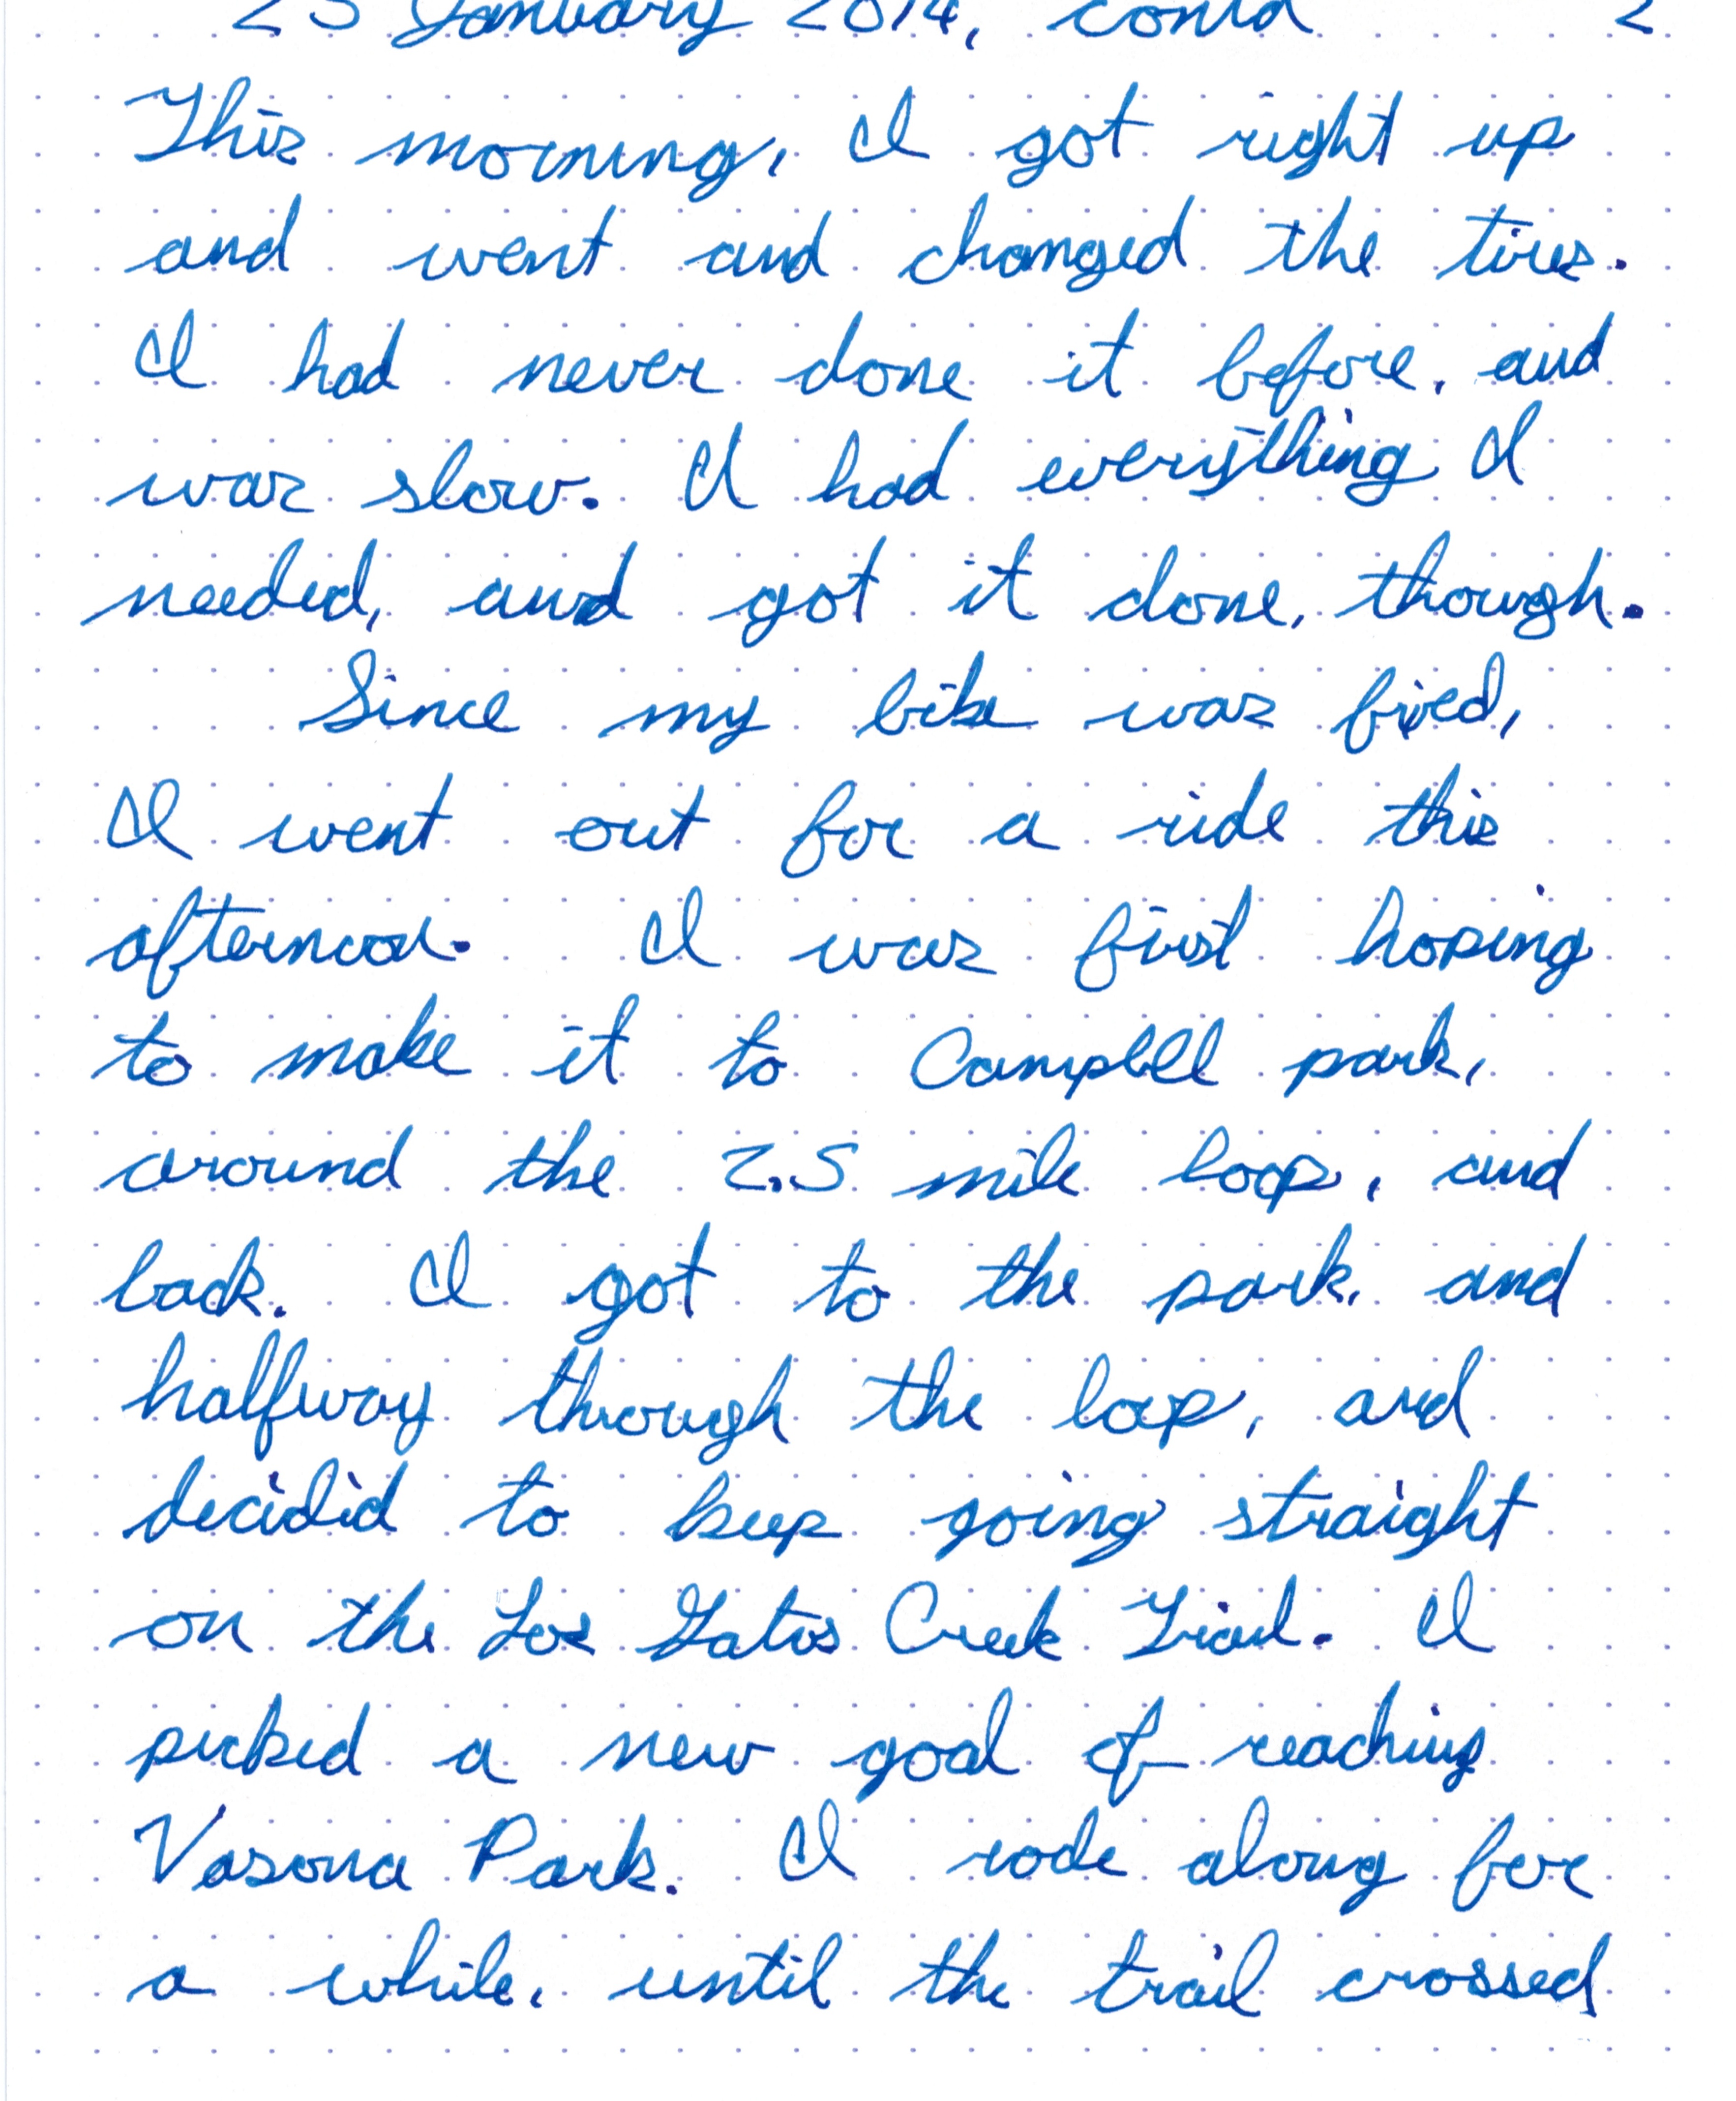 25 January 2014, contd 2
This morning, I got right up
and went and changed the tires.
I had never done it before, and
was slow. I had everything I
needed, and got it done, though.
Since my bike was fixed,
I went out for a ride this
afternoon. I was first hoping
to make it to Campbell park,
around the 2.5 mile loop, and
back. I got to the park, and
halfway through the loop, and
decided to keep going straight
on the Los Gatos Creek Trail. I
picked a new goal of reaching
Vasona Park. I rode along for
a while, until the trail crossed